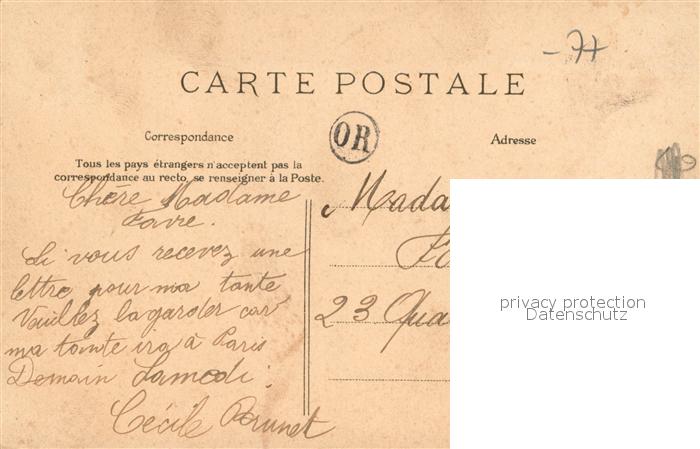 -77
CARTE POSTALE
Correspondance
OR
Adresse
Tous les pays étrangers n'acceptent pas la
correspondance au recto, se renseigner à la Poste.
Chère Madame
Favre.
Si vous recevez une
lettre pour ma tante
Veuillez la garder car
ma tante ira à Paris
Demain Samedi.
Cécile Brunet
Mada
23 Qua
privacy protection
Datenschutz